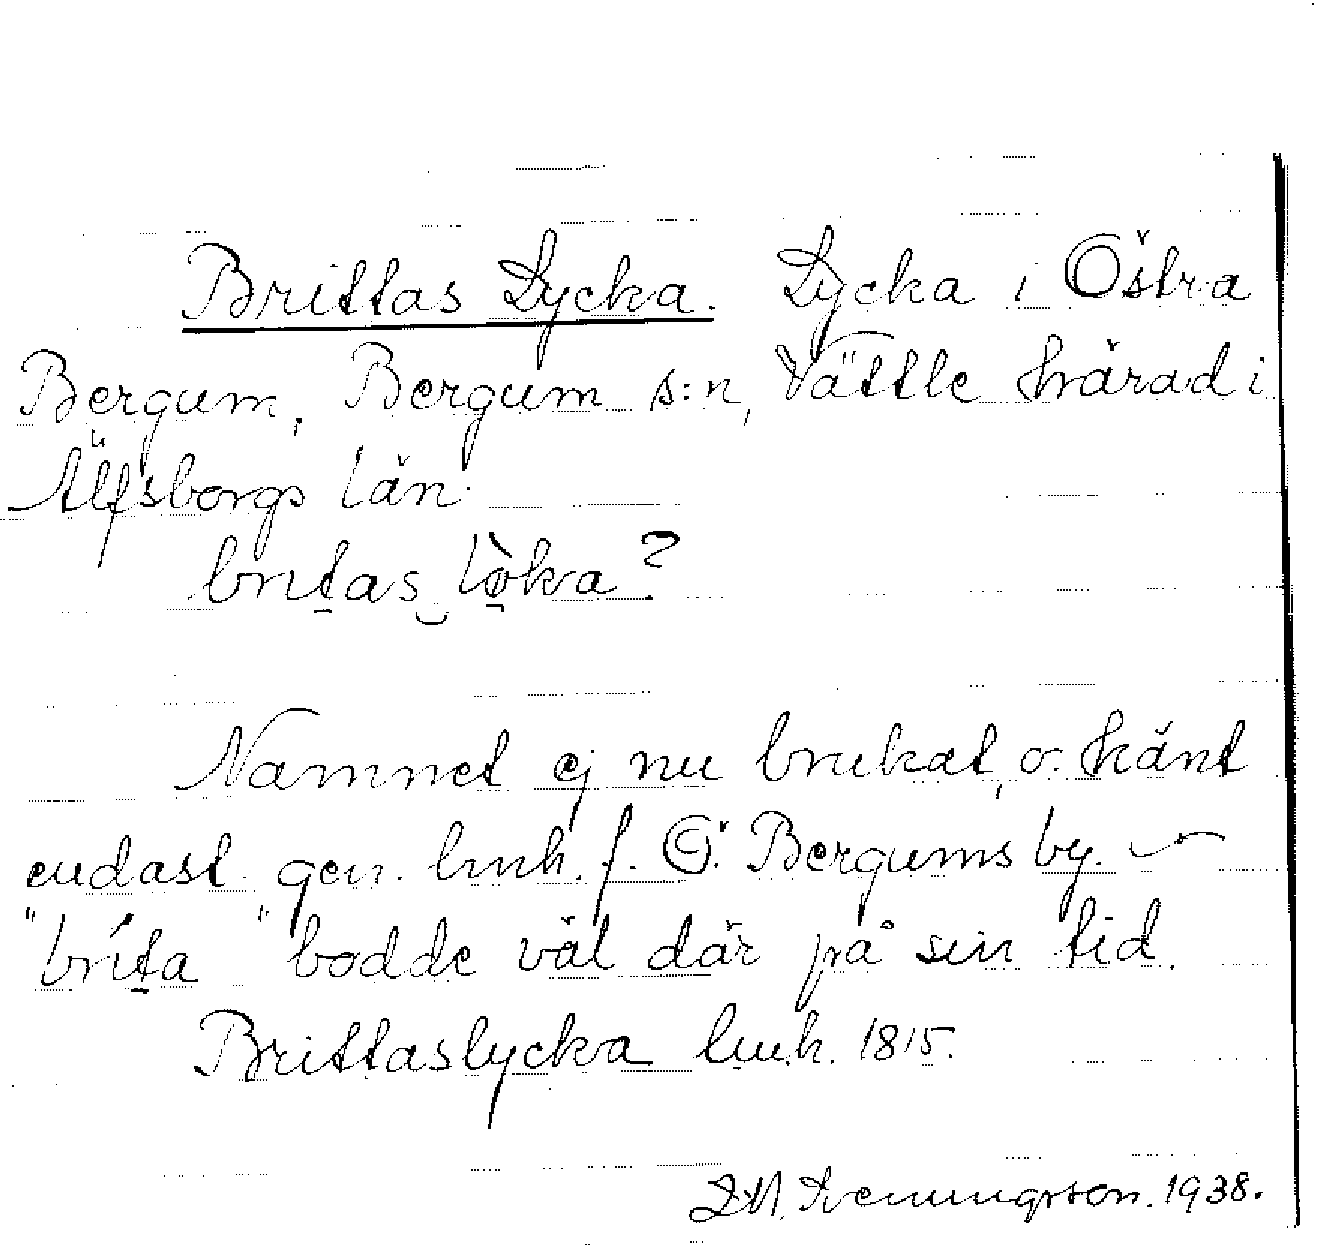 Brittas Lycka. Lycka i Östra
Bergum, Bergum s:n, Vättle härad i
Älfsborgs län.
britas løka?
Namnet ej nu brukat, o. känt
endast gen. lmh. f. Ö. Bergums by. –
"brita" bodde väl där på sin tid.
Brittaslycka lmh. 1815.
Sveningson. 1938.